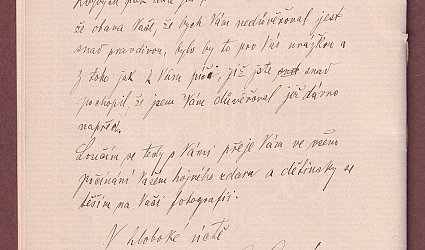 že obava Vaší, že bych Vám nedůvěřoval jest
snad pravdivou, bylo by to pro Vás urážkou a
z toho jak k Vám píši, již jste snad
pochopil, že jsem Vám důvěřoval již dávno
napřed.
Loučím se tedy s Vámi přeje Vám ve všem
počínání Vašem hojného zdaru a dětinsky se
těším na Vaší fotografii.
V hluboké úctě